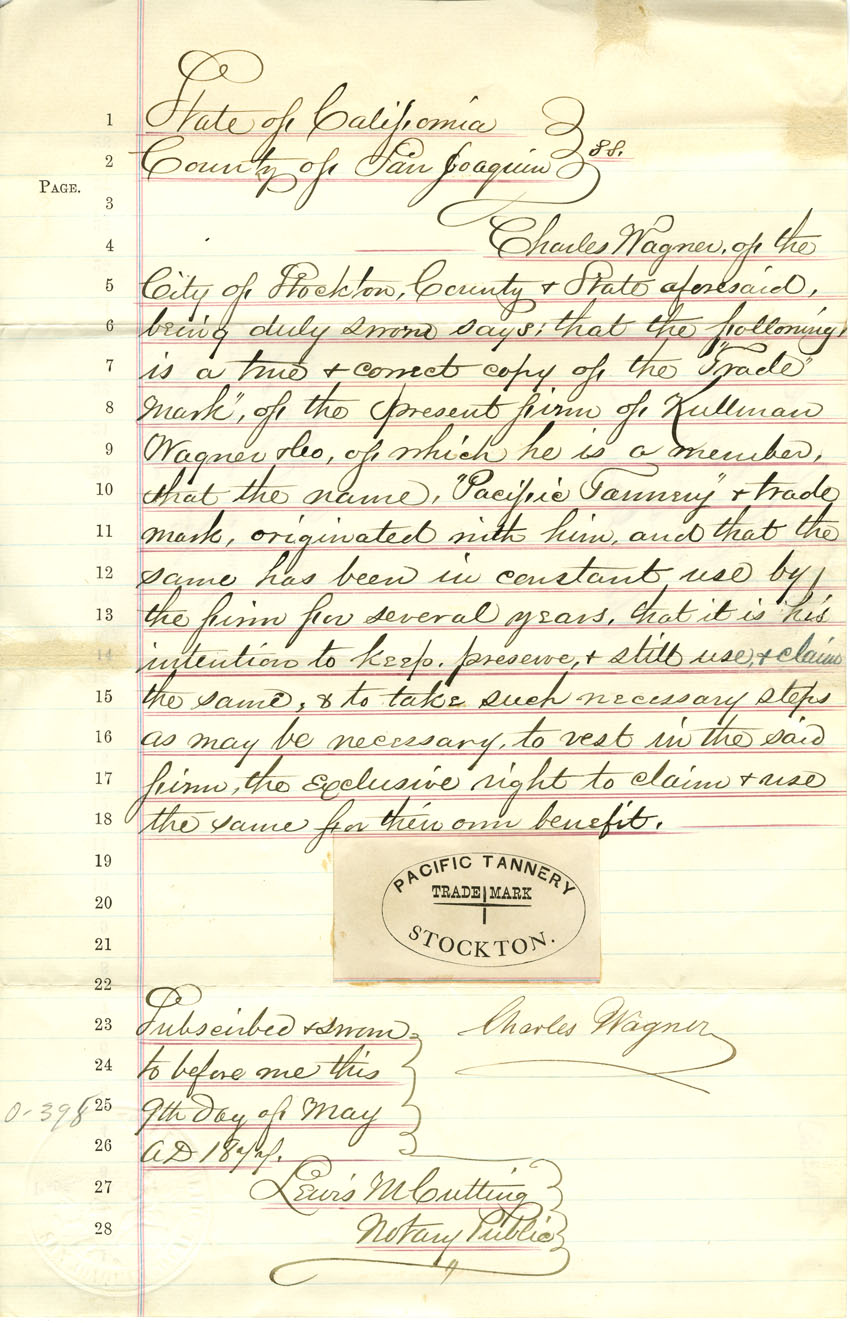 1 State of California
2 County of San Joaquin ss.
PAGE.
3
4 Charles Wagner, of the
5 City of Stockton, County & State aforesaid,
6 being duly sworn says; that the following,
7 is a true & correct copy of the "Trade"
8 mark", of the present firm of Kullman
9 Wagner & Co, of which he is a member,
10 that the name, "Pacific Tannery" & trade
11 mark, originated with him, and that the
12 same has been in constant use by
13 the firm for several years, that it is his
14 intention to keep, preserve, & still use, & claim
15 the same, & to take such necessary steps
16 as may be necessary, to vest in the said
17 firm, the Exclusive right to claim & use
18 the same for their own benefit.
19
20
21
22
PACIFIC TANNERY
TRADE MARK
STOCKTON.
23 Subscribed & sworn
Charles Wagner
24 to before me this
25 9th Day of May
0-398
26 AD 1877.
27 Lewis M Cutting
28 Notary Public